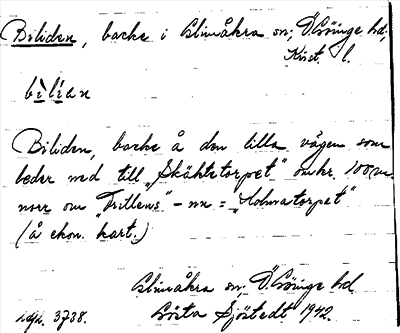 Biliden, backe i Glimåkra sn; Ö. Göinge hd,
Krist. l.
bìlìan
Biliden, backe å den lilla vägen som
leder ned till "Skähtetorpet" omkr. 100 m.
norr om "Trillens" - nu = "Holmatorpet"
(å ekon. kart.)
Glimåkra sn, Ö. Göinge hd.
Gösta Sjöstedt 1942.
3738.